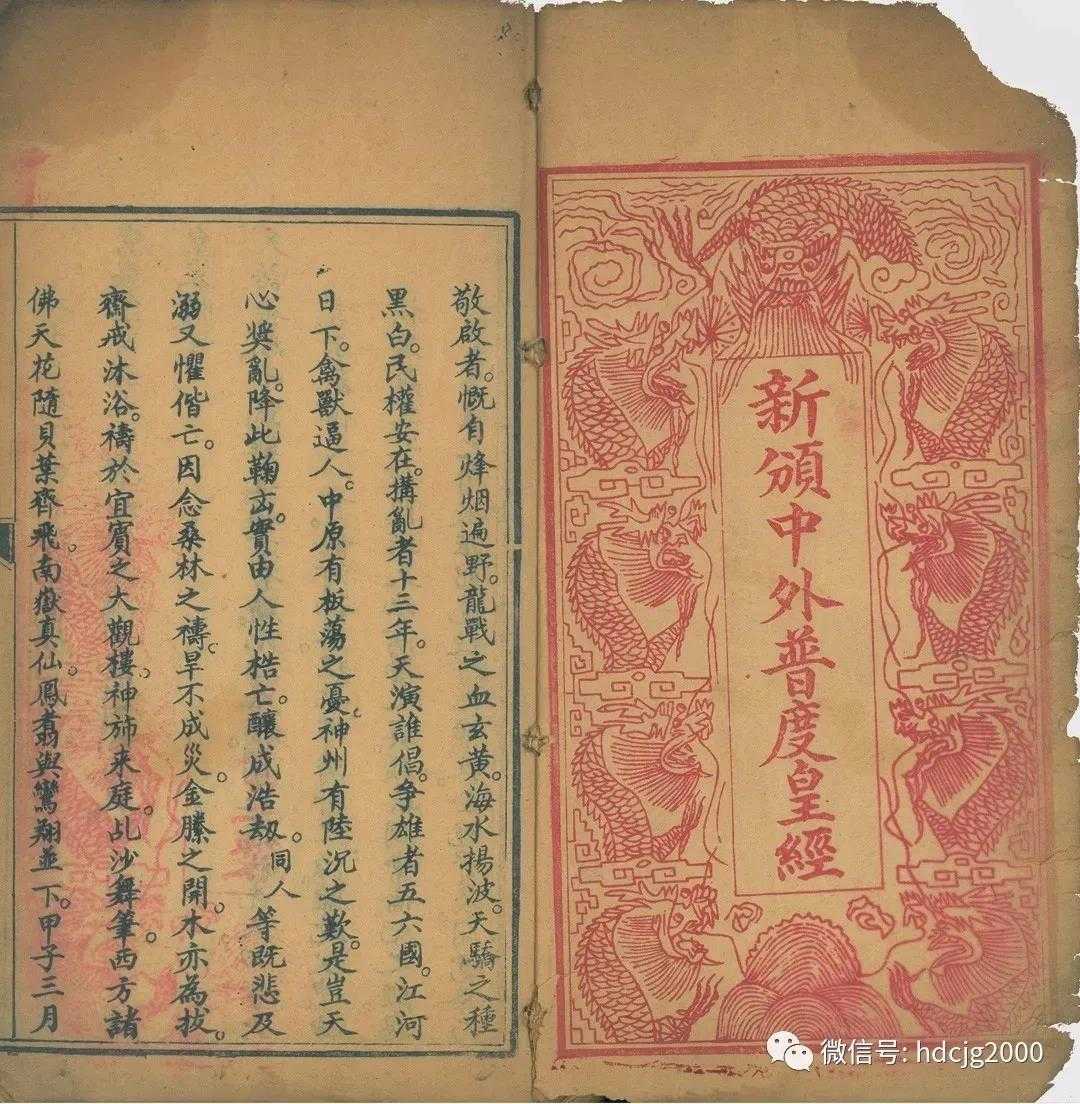 新頒中外普度皇經
敬啟者。慨自烽烟遍野。龍戰之血玄黃。海水揚波。天驕之種
黑白。民權安在。搆亂者十三年。天演誰倡。爭雄者五六國。江河
日下。禽獸逼人。中原有板蕩之憂。神州有陸沉之歎。是豈天
心奬亂。降此鞠凶。實由人性梏亡。釀成浩刼。同人等既悲及
溺。又懼偕亡。因念桑林之禱。旱不成災。金縢之開。木亦為拔。
齊戒沐浴。禱於宜賓之大觀樓。神斾来庭。乩沙舞筆。西方諸
佛天花隨貝葉齊飛。南嶽真仙。鳳翥與鸞翔並下。甲子三月
微信号: hdcjg2000